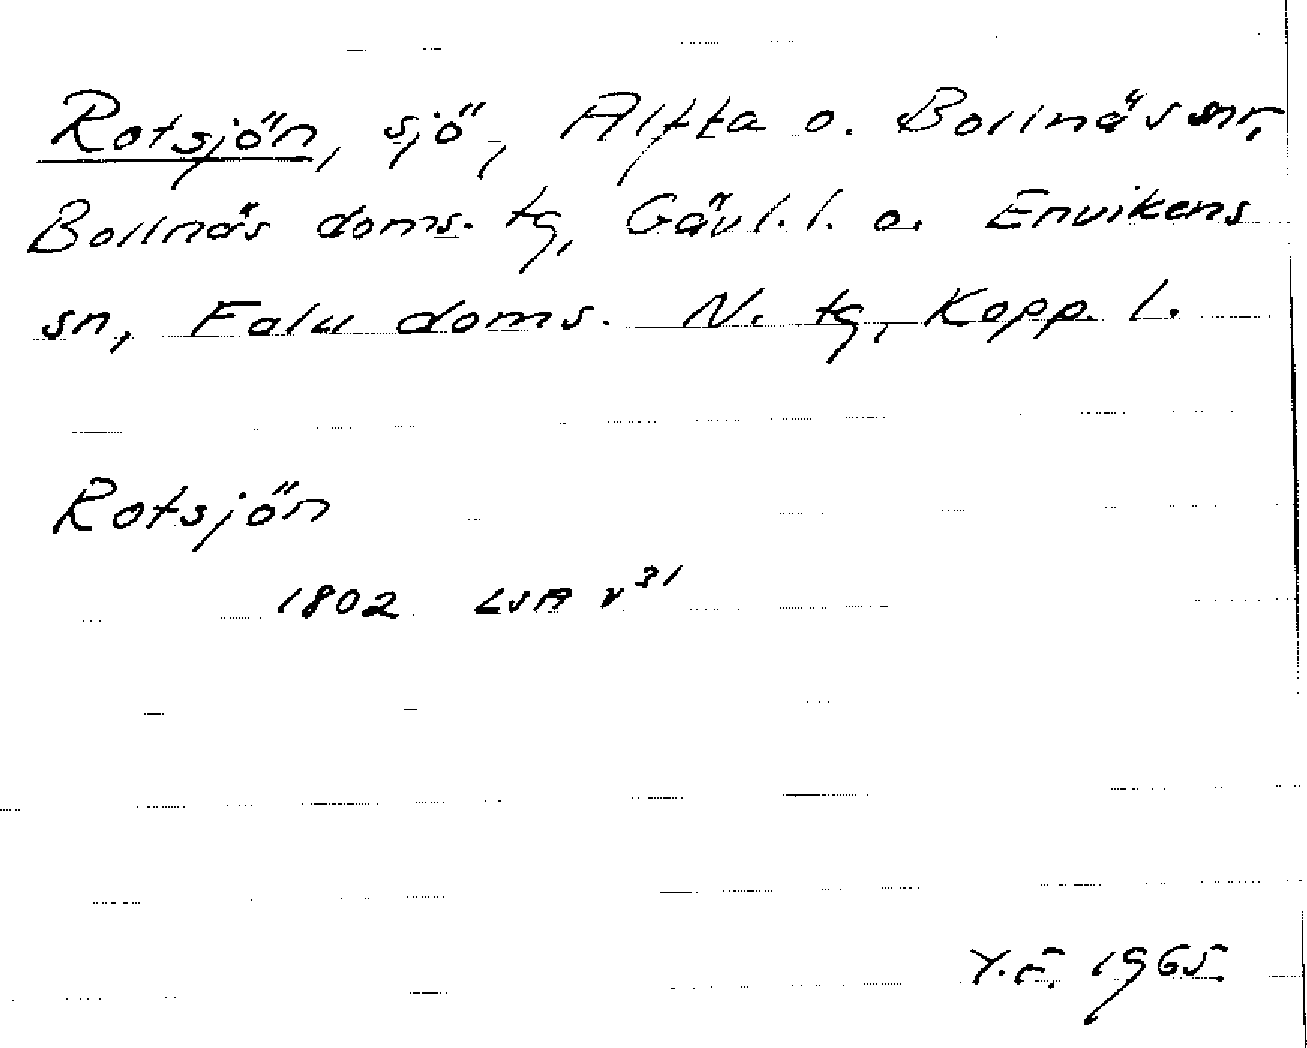 Rotsjön, sjö, Alfta o. Bollnäs snr,
Bollnäs doms. tg, Gävl. l. o. Envikens
sn, Falu doms. N. tg, Kopp. l.
Rotsjön
1802 LSA v³¹
Y.E. 1965